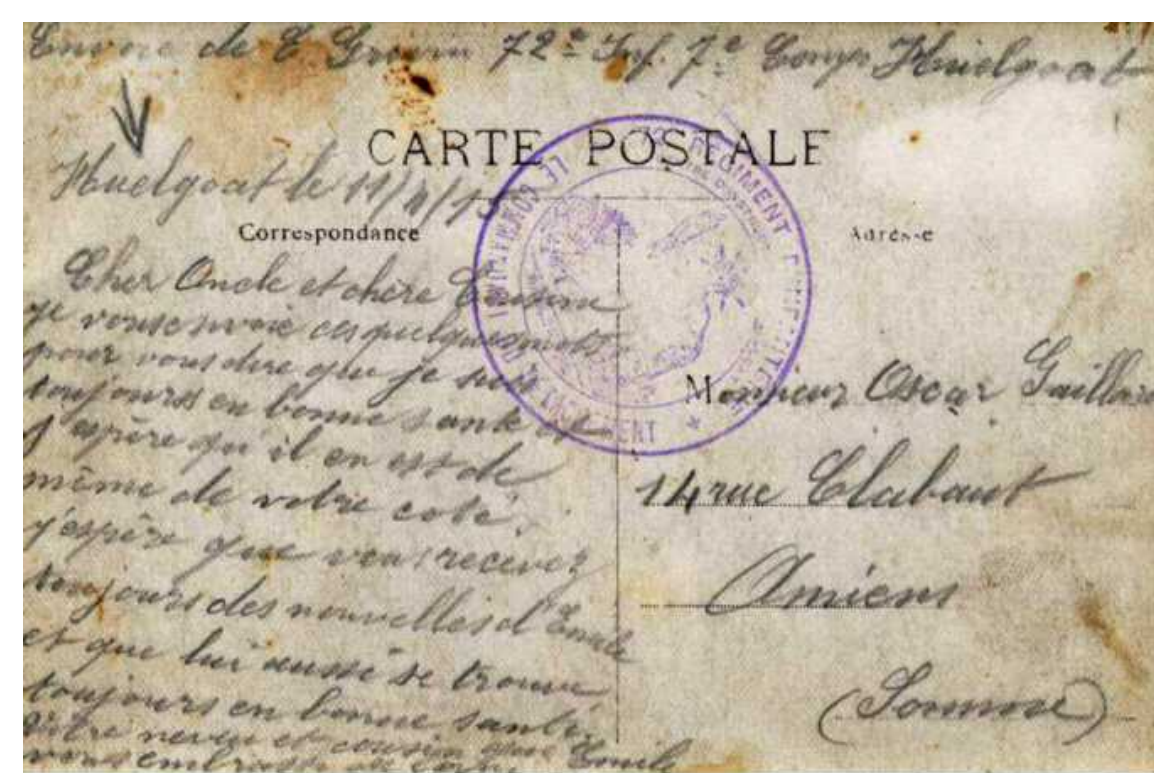 Envoie de E 72e Inf. 7e Comp Huelgoat
CARTE POSTALE
Huelgoat le 11/4/15
Correspondance
Adresse
Cher Oncle et chère Cousine
je vous envoie ces quelques mots
pour vous dire que je suis
toujours en bonne santé et
j'espère qu'il en est de
même de votre coté.
j'espère que vous recevez
toujours des nouvelles d'Emile
et que lui aussi se trouve
toujours en bonne santé.
Votre neveu et cousin qui
vous embrasse Emile
Monsieur Oscar Gaillard
14 rue Clabaut
Amiens
(Somme)
REGIMENT D'INFANTERIE
LE COMMANDANT